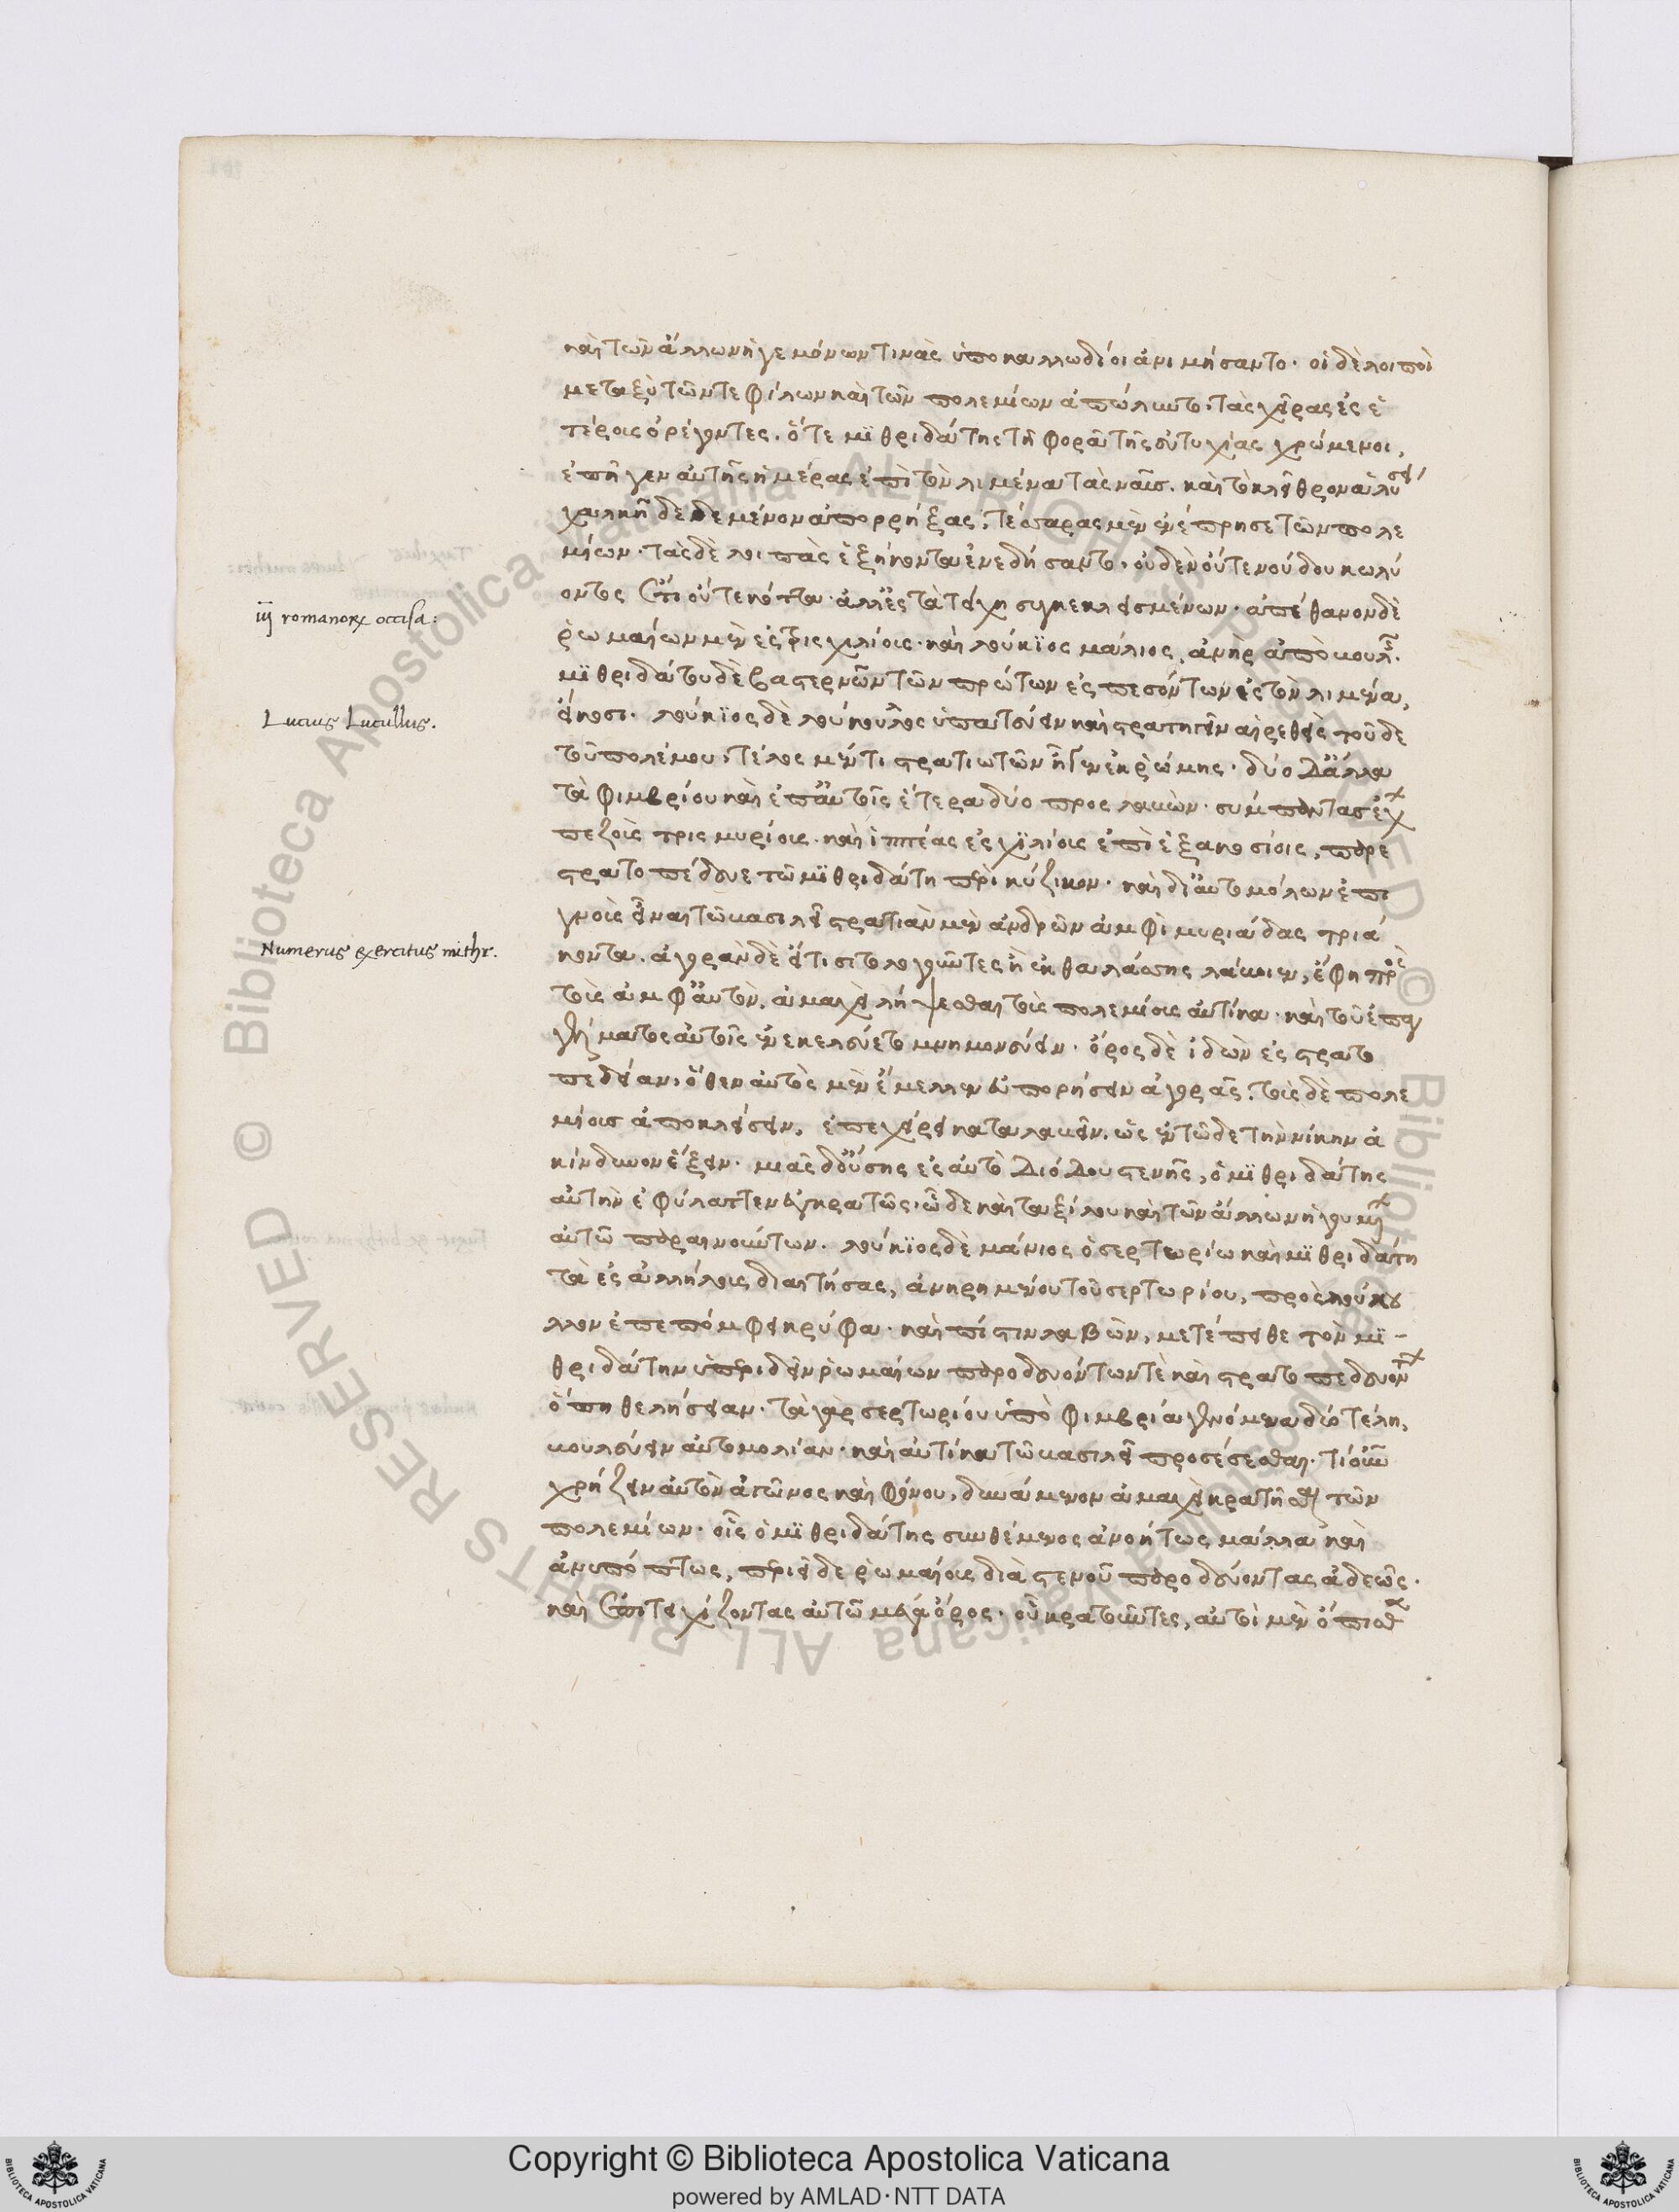 καὶ τῶν ἄλλων ἡγεμόνων τινὰς ὑπὸ καλωδίοι ἀνιμήσαντο. οἱ δὲ λοιποὶ
μεταξὺ τῶν τε φίλων καὶ τῶν πολεμίων ἀπώλοντο, τὰς χεῖρας ἐς ἑ
τέρους ὀρέγοντες. ὅ τε μϊθριδάτης τῇ φορᾷ τῆς εὐτυχίας χρώμενοι,
ἐπῆγεν αὐτῆς ἡμέρας ἐπὶ τὸν λιμένα τὰς ναῦς. καὶ τὸ κλεῖθρον ἁλύσει
χαλκῇ δεδεμένον ἀπορρήξας, τέσσαρας μὲν ἐνέπρησε τῶν πολε
μίων. τὰς δὲ λοιπὰς ἑξήκοντα ἀνεδήσαντο, οὐδὲν οὔτε νούδου κωλύ
οντος ἔτι οὔτε κόττα. ἀλλ' ἐς τὰ τείχη συγκεκλεισμένων. ἀπέθανον δὲ
ῥωμαίων μὲν ἐς τρισχιλίους. καὶ λούκϊος μάλιος, ἀνὴρ ἀπὸ βουλῆς.
μϊθριδάτου δὲ βαστερνῶν τῶν πρώτων ἐσπεσόντων ἐς τὸν λιμένα,
εἴκοσι. λούκϊος δὲ λούκουλλος ὑπατεύειν καὶ στρατηγεῖν αἱρεθεὶς τοῦδε
τοῦ πολέμου, τέλος μέν τι στρατιωτῶν ἦγεν ἐκ ῥώμης. δύο δ' ἄλλα
τὰ φιμβρίου καὶ ἐπ' αὐτοῖς ἕτερα δύο προσλαβών. σύμπαντας ἔχων
πεζοὺς τρισμυρίους. καὶ ἱππέας ἐς χϊλίους ἐπὶ ἑξακοσίοις, παρε
στρατοπέδευε τῷ μϊθριδάτη περὶ κύζικον. καὶ δι' αὐτομόλων ἐπι
γνοὺς εἶναι τῷ βασιλεῖ στρατιὰν μὲν ἀνδρῶν ἀμφὶ μυριάδας τριά
κοντα. ἀγορὰν δὲ εἴ τι σιτολογοῦντες ἢ ἐκ θαλάσσης λάβοιεν, ἔφη πρὸς
τοὺς ἀμφ' αὐτὸν, ἀμαχεὶ λήψεσθαι τοὺς πολεμίους αὐτίκα. καὶ τοῦ ἐπαγ
γέλματος αὐτοῖς ἐνεκελεύετο μνημονεύειν. ὄρος δὲ ἰδὼν ἐς στρατο
πεδείαν, ὅθεν αὐτὸς μὲν ἔμελλεν εὐπορήσειν ἀγορᾶς, τοὺς δὲ πολε
μίους ἀποκλείσειν, ἐπεχείρει καταλαβεῖν, ὡς ἐν τῷδε τὴν νίκην ἀ
κίνδυνον ἕξειν. μιᾶς δ' οὔσης ἐς αὐτὸ διόδου στενῆς, ὁ μϊθριδάτης
αὐτὴν ἐφύλαττεν ἐγκρατῶς. ὧδε καὶ ταξίλου καὶ τῶν ἄλλων ἡγεμόνων
αὐτῷ παραινούντων. λούκϊος δὲ μάνιος ὁ σερτωρίω καὶ μϊθριδάτη
τὰ ἐς ἀλλήλους διαιτήσας, ἀνηρημένου τοῦ σερτωρίου, πρὸς λούκου
λλον ἐπεπόμφει κρύφα. καὶ πίστιν λαβὼν, μετέπειθε τὸν μϊ-
θριδάτην ὑπεριδεῖν ῥωμαίων παροδευόντων τὲ καὶ στρατοπεδευόντων
ὅπη θελήσειαν. τὰ γὰρ σερτωρίου ὑπὸ φιμβρία γενόμενα δύο τέλη,
βουλεύειν αὐτομολίαν. καὶ αὐτίκα τῷ βασιλεῖ προσέσεσθαι. τί οὖν
χρήζειν αὐτὸν ἀγῶνος καὶ φόνου, δυνάμενον ἀμαχεὶ κρατῆσαι τῶν
πολεμίων. οἷς ὁ μϊθριδάτης συνθέμενος ἀνοήτως μάλλα καὶ
ἀνυπόπτως, περιεῖδε ῥωμαίους διὰ στενοῦ παροδεύοντας ἀδεῶς.
καὶ ἐπιτειχίζοντας αὐτῷ μέγα ὄρος. οὗ κρατοῦντες, αὐτοὶ μὲν ὄπισθεν
iij romanorum occisa:
Lucius Lucullus.
Numerus exercitus mithr.
Copyright © Biblioteca Apostolica Vaticana
powered by AMLAD·NTT DATA